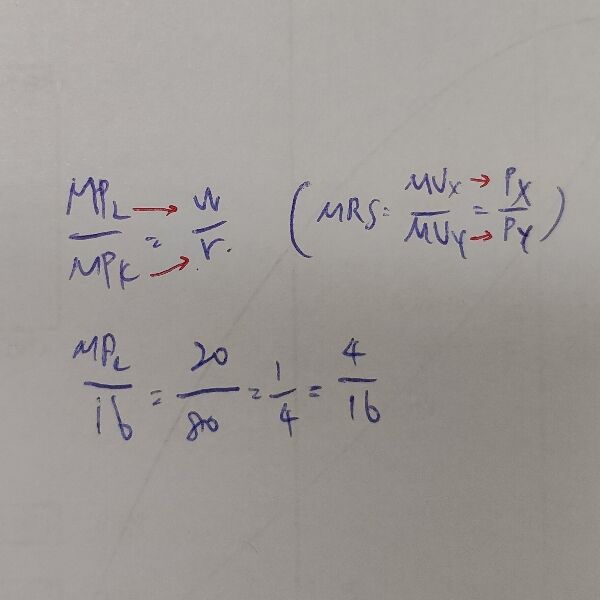 MPL/MPK = w/r. (MRS = MUx/MUy = Px/Py)
MPL/16 = 20/80 = 1/4 = 4/16